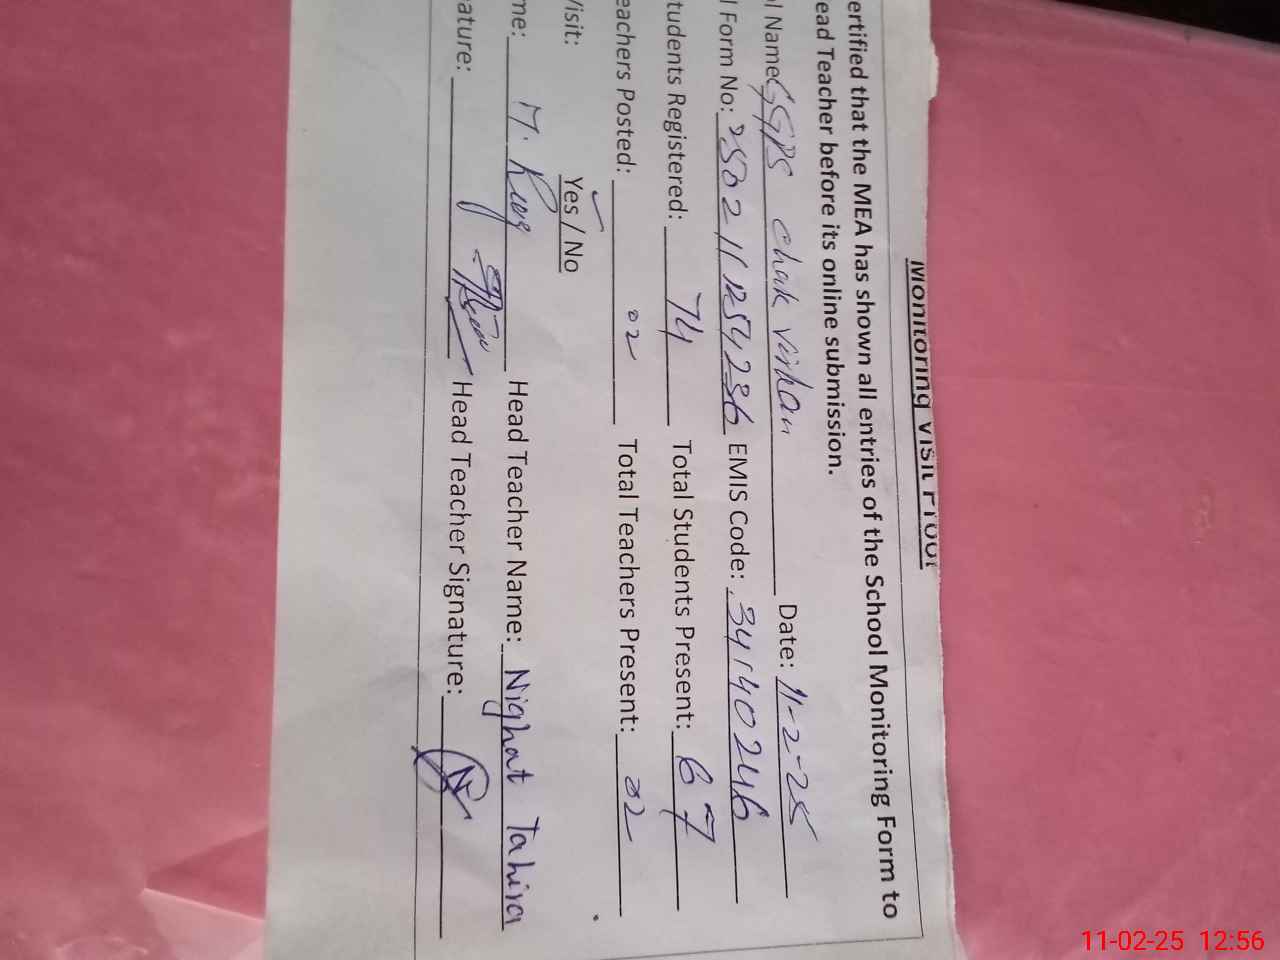 Monitoring Visit Proof
ertified that the MEA has shown all entries of the School Monitoring Form to
ead Teacher before its online submission.
l Name: GGPS Chak Date: 11-2-25
l Form No: EMIS Code: 34140246
tudents Registered: 74 Total Students Present: 67
eachers Posted: 02 Total Teachers Present: 02
Visit: Yes / No
me: M. Head Teacher Name: Nighat Tahira
ature: Head Teacher Signature:
11-02-25 12:56